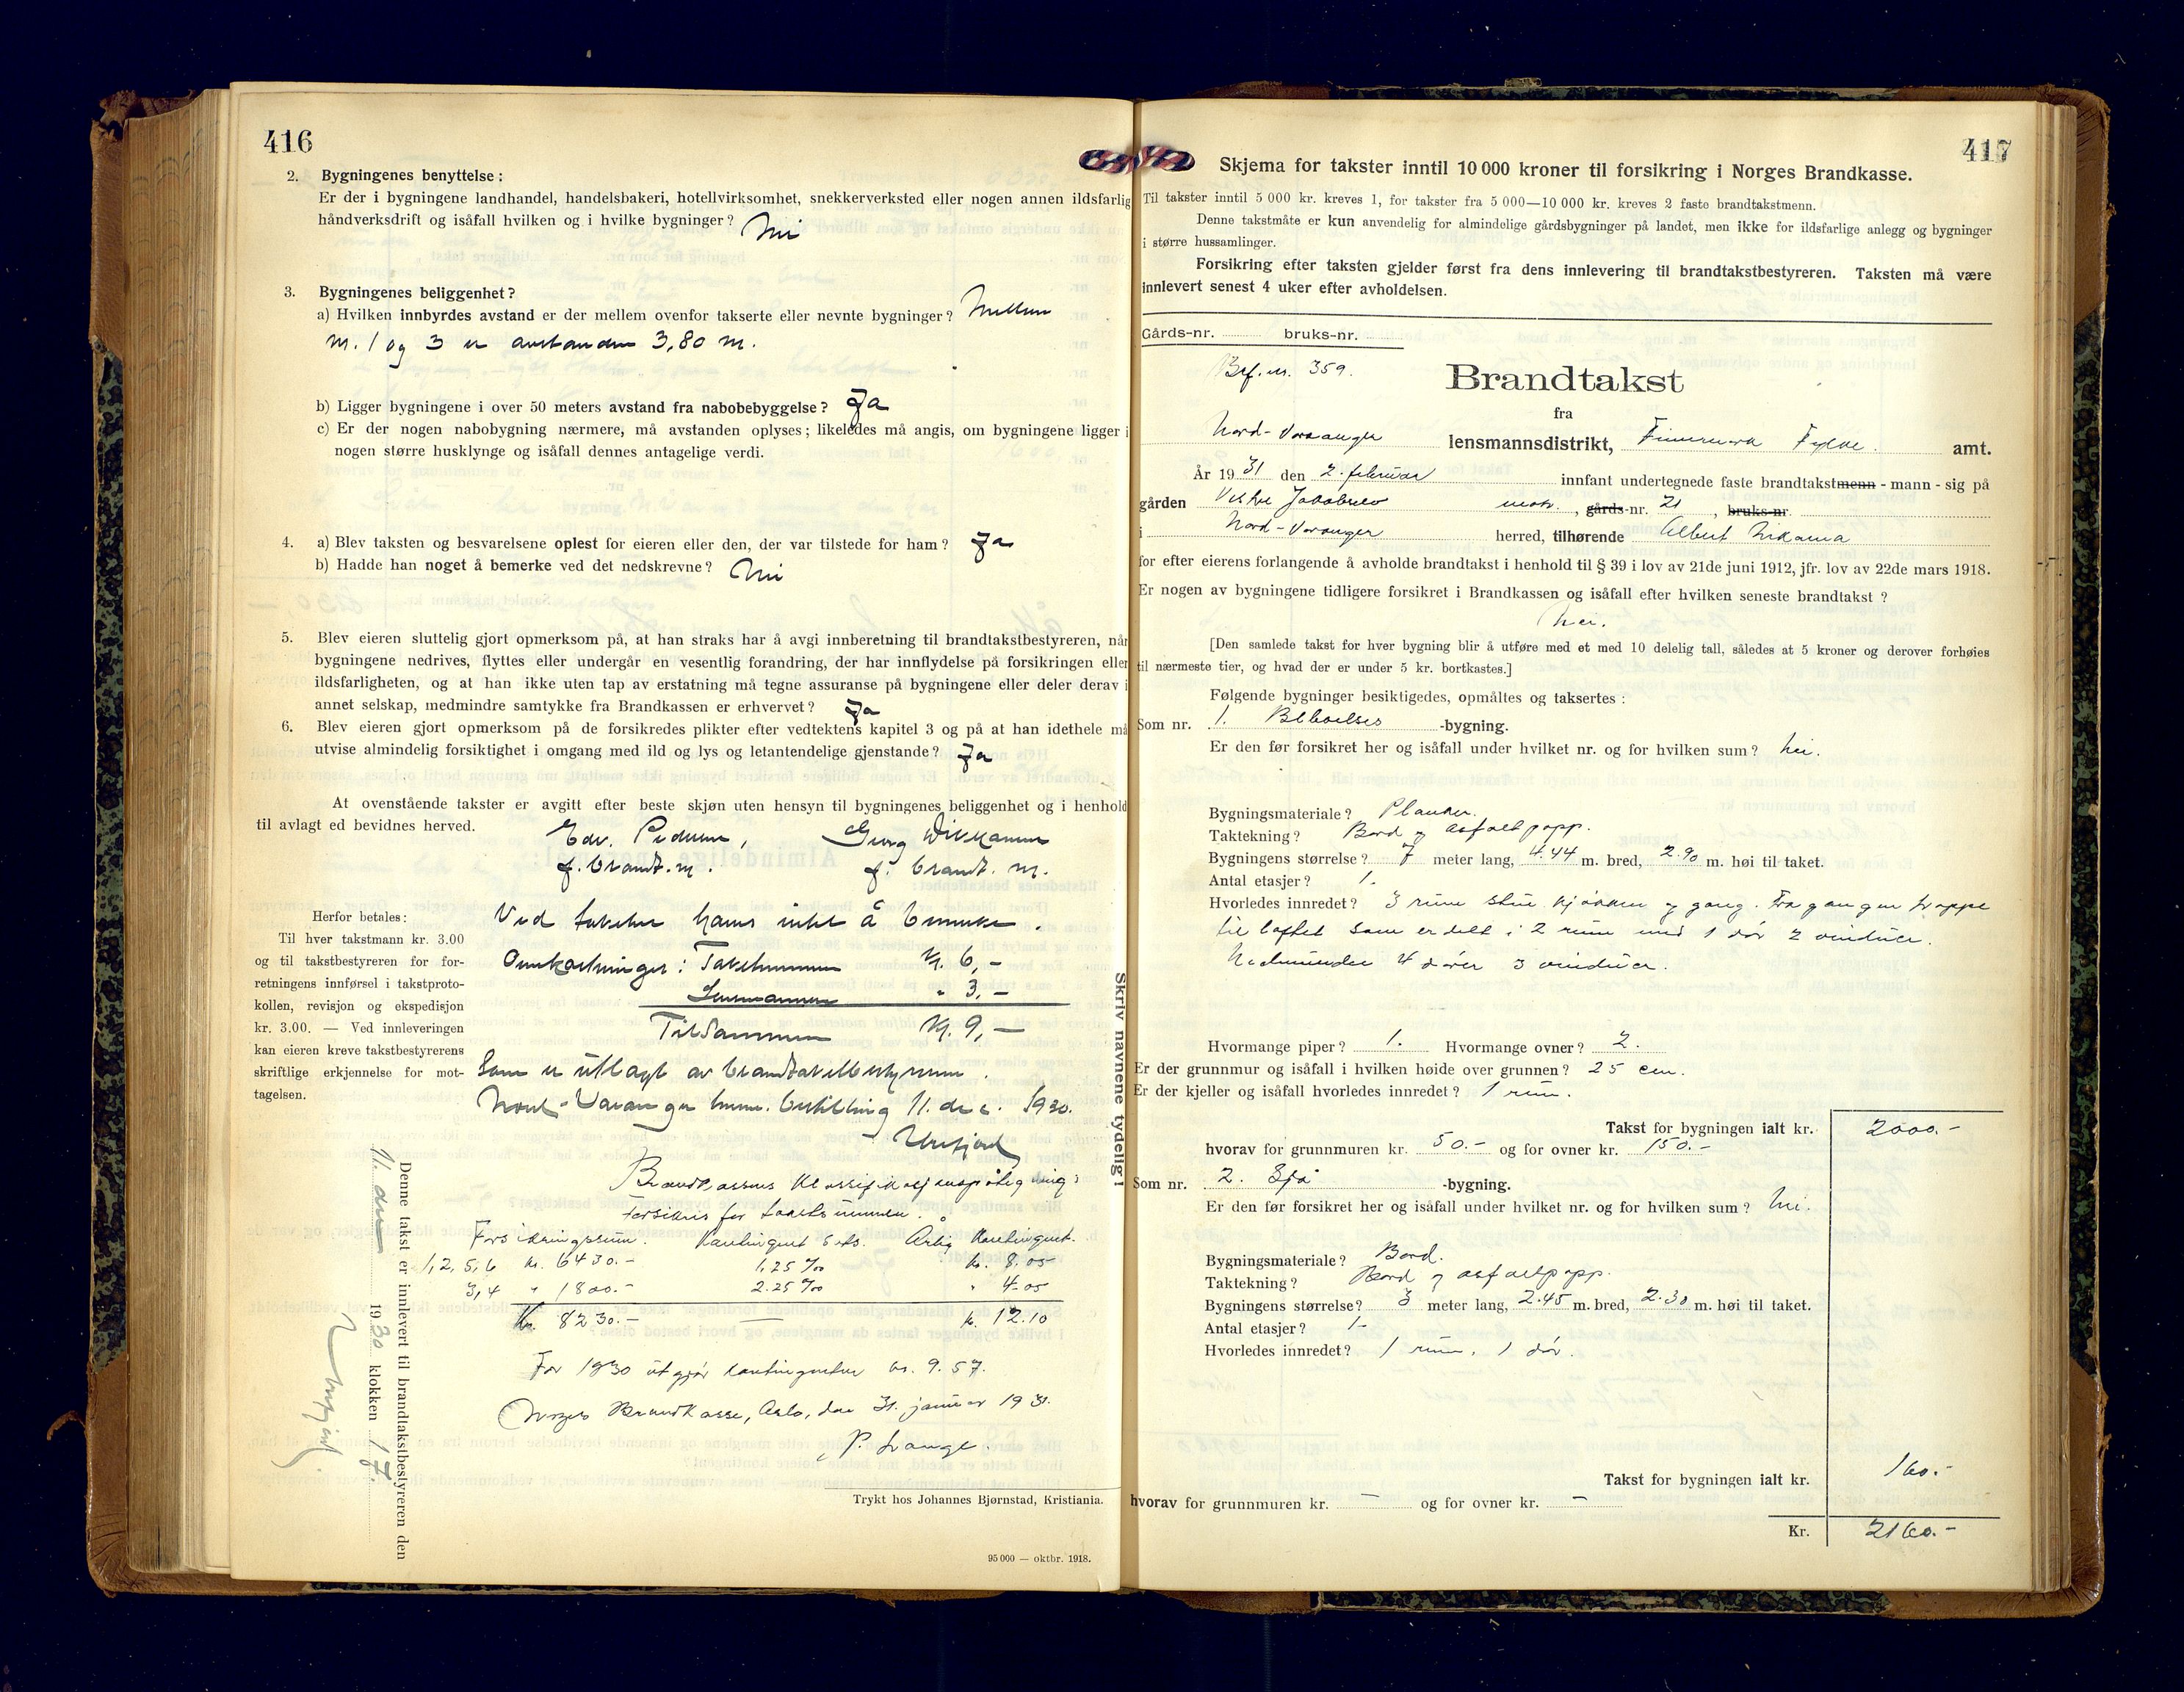 416
2. Bygningenes benyttelse :
Er der i bygningene landhandel, handelsbakeri, hotellvirksomhet, snekkerverksted eller nogen annen ildsfarlig
håndverksdrift og isåfall hvilken og i hvilke bygninger? Nei
3. Bygningenes beliggenhet?
a) Hvilken innbyrdes avstand er der mellem ovenfor takserte eller nevnte bygninger? Mellem
nr. 1 og 3 er avstanden 3,80 m.
b) Ligger bygningene i over 50 meters avstand fra nabobebyggelse? Ja
c) Er der nogen nabobygning nærmere, må avstanden oplyses; likeledes må angis, om bygningene ligger i
nogen større husklynge og isåfall dennes antagelige verdi.
4. a) Blev taksten og besvarelsene oplest for eieren eller den, der var tilstede for ham? Ja
b) Hadde han noget å bemerke ved det nedskrevne? Nei
5. Blev eieren sluttelig gjort opmerksom på, at han straks har å avgi innberetning til brandtakstbestyreren, når
bygningene nedrives, flyttes eller undergår en vesentlig forandring, der har innflydelse på forsikringen eller
ildsfarligheten, og at han ikke uten tap av erstatning må tegne assuranse på bygningene eller deler derav i
annet selskap, medmindre samtykke fra Brandkassen er erhvervet? Ja
6. Blev eieren gjort opmerksom på de forsikredes plikter efter vedtektens kapitel 3 og på at han idethele må
utvise almindelig forsiktighet i omgang med ild og lys og letantendelige gjenstande? Ja
At ovenstående takster er avgitt efter beste skjøn uten hensyn til bygningenes beliggenhet og i henhold
til avlagt ed bevidnes herved.
Edv. Pedersen, Georg Dikkanen
f. brandt. m. f. brandt. m.
Herfor betales:
Til hver takstmann kr. 3.00
og til takstbestyreren for for-
retningens innførsel i takstproto-
kollen, revisjon og ekspedisjon
kr. 3.00. — Ved innleveringen
kan eieren kreve takstbestyrerens
skriftlige erkjennelse for mot-
tagelsen.
Ved taksten haves intet å bemerke.
Omkostninger: Takstmennene Kr. 6,-
Lensmannen " 3,-
Tilsammen Kr. 9,-
Som er utlagt av brandtakstbestyreren.
Nord-Varanger lensm. bestilling 11. des. 1930.
Brandkassens Klassifikasjonspåtegning:
Forsikres for takstsummen.
Forsikringssum. Kontingent sats. Årlig Kontingent.
1, 2, 5, 6 kr. 6430.- 1,25 ‰ kr. 8.05
3, 4 " 1800.- 2.25 ‰ " 4.05
Kr. 8230.- — kr. 12.10
For 1930 utgjør kontingenten kr. 9.57.
Norges Brandkasse, Oslo, den 31. januar 1931.
P. Lange.
Denne takst er innlevert til brandtakstbestyreren den
11. des 1930 klokken 17.
Trykt hos Johannes Bjørnstad, Kristiania.
95 000 — oktbr. 1918.
Skriv navnene tydelig!
417
Skjema for takster inntil 10 000 kroner til forsikring i Norges Brandkasse.
Til takster inntil 5 000 kr. kreves 1, for takster fra 5 000—10 000 kr. kreves 2 faste brandtakstmenn.
Denne takstmåte er kun anvendelig for almindelige gårdsbygninger på landet, men ikke for ildsfarlige anlegg og bygninger
i større hussamlinger.
Forsikring efter taksten gjelder først fra dens innlevering til brandtakstbestyreren. Taksten må være
innlevert senest 4 uker efter avholdelsen.
Gårds-nr. bruks-nr.
Brf. nr. 359.
Brandtakst
fra
Nord-Varanger lensmannsdistrikt, Finnmark Fylke. amt.
År 1931 den 2. februar innfant undertegnede faste brandtakstmenn - mann - sig på
gården Vestre Jakobselv matr., gårds-nr. 21, bruks-nr.
i Nord-Varanger herred, tilhørende Albert
for efter eierens forlangende å avholde brandtakst i henhold til § 39 i lov av 21de juni 1912, jfr. lov av 22de mars 1918.
Er nogen av bygningene tidligere forsikret i Brandkassen og isåfall efter hvilken seneste brandtakst ?
Nei.
[Den samlede takst for hver bygning blir å utføre med et med 10 delelig tall, således at 5 kroner og derover forhøies
til nærmeste tier, og hvad der er under 5 kr. bortkastes.]
Følgende bygninger besiktigedes, opmåltes og taksertes :
Som nr. 1. Beboelses -bygning.
Er den før forsikret her og isåfall under hvilket nr. og for hvilken sum? Nei.
Bygningsmateriale? Planker.
Taktekning? Bord og asfaltpapp.
Bygningens størrelse? 7 meter lang, 4.44 m. bred, 2.90 m. høi til taket.
Antal etasjer? 1.
Hvorledes innredet? 3 rum stue kjøkken og gang. Fra gangen trappe
til loftet som er delt i 2 rum med 1 dør 2 vinduer.
Nedenunder 4 dører 3 vinduer.
Hvormange piper? 1. Hvormange ovner? 2.
Er der grunnmur og isåfall i hvilken høide over grunnen? 25 cm.
Er der kjeller og isåfall hvorledes innredet? 1 rum.
Takst for bygningen ialt kr. 2000.-
hvorav for grunnmuren kr. 50.- og for ovner kr. 150.-
Som nr. 2. Sjå -bygning.
Er den før forsikret her og isåfall under hvilket nr. og for hvilken sum? Nei.
Bygningsmateriale? Bord.
Taktekning? Bord og asfaltpapp.
Bygningens størrelse? 3 meter lang, 2.45 m. bred, 2.30 m. høi til taket.
Antal etasjer? 1-
Hvorledes innredet? 1 rum, 1 dør.
Takst for bygningen ialt kr. 160.-
hvorav for grunnmuren kr. — og for ovner kr. —
Kr. 2160.-